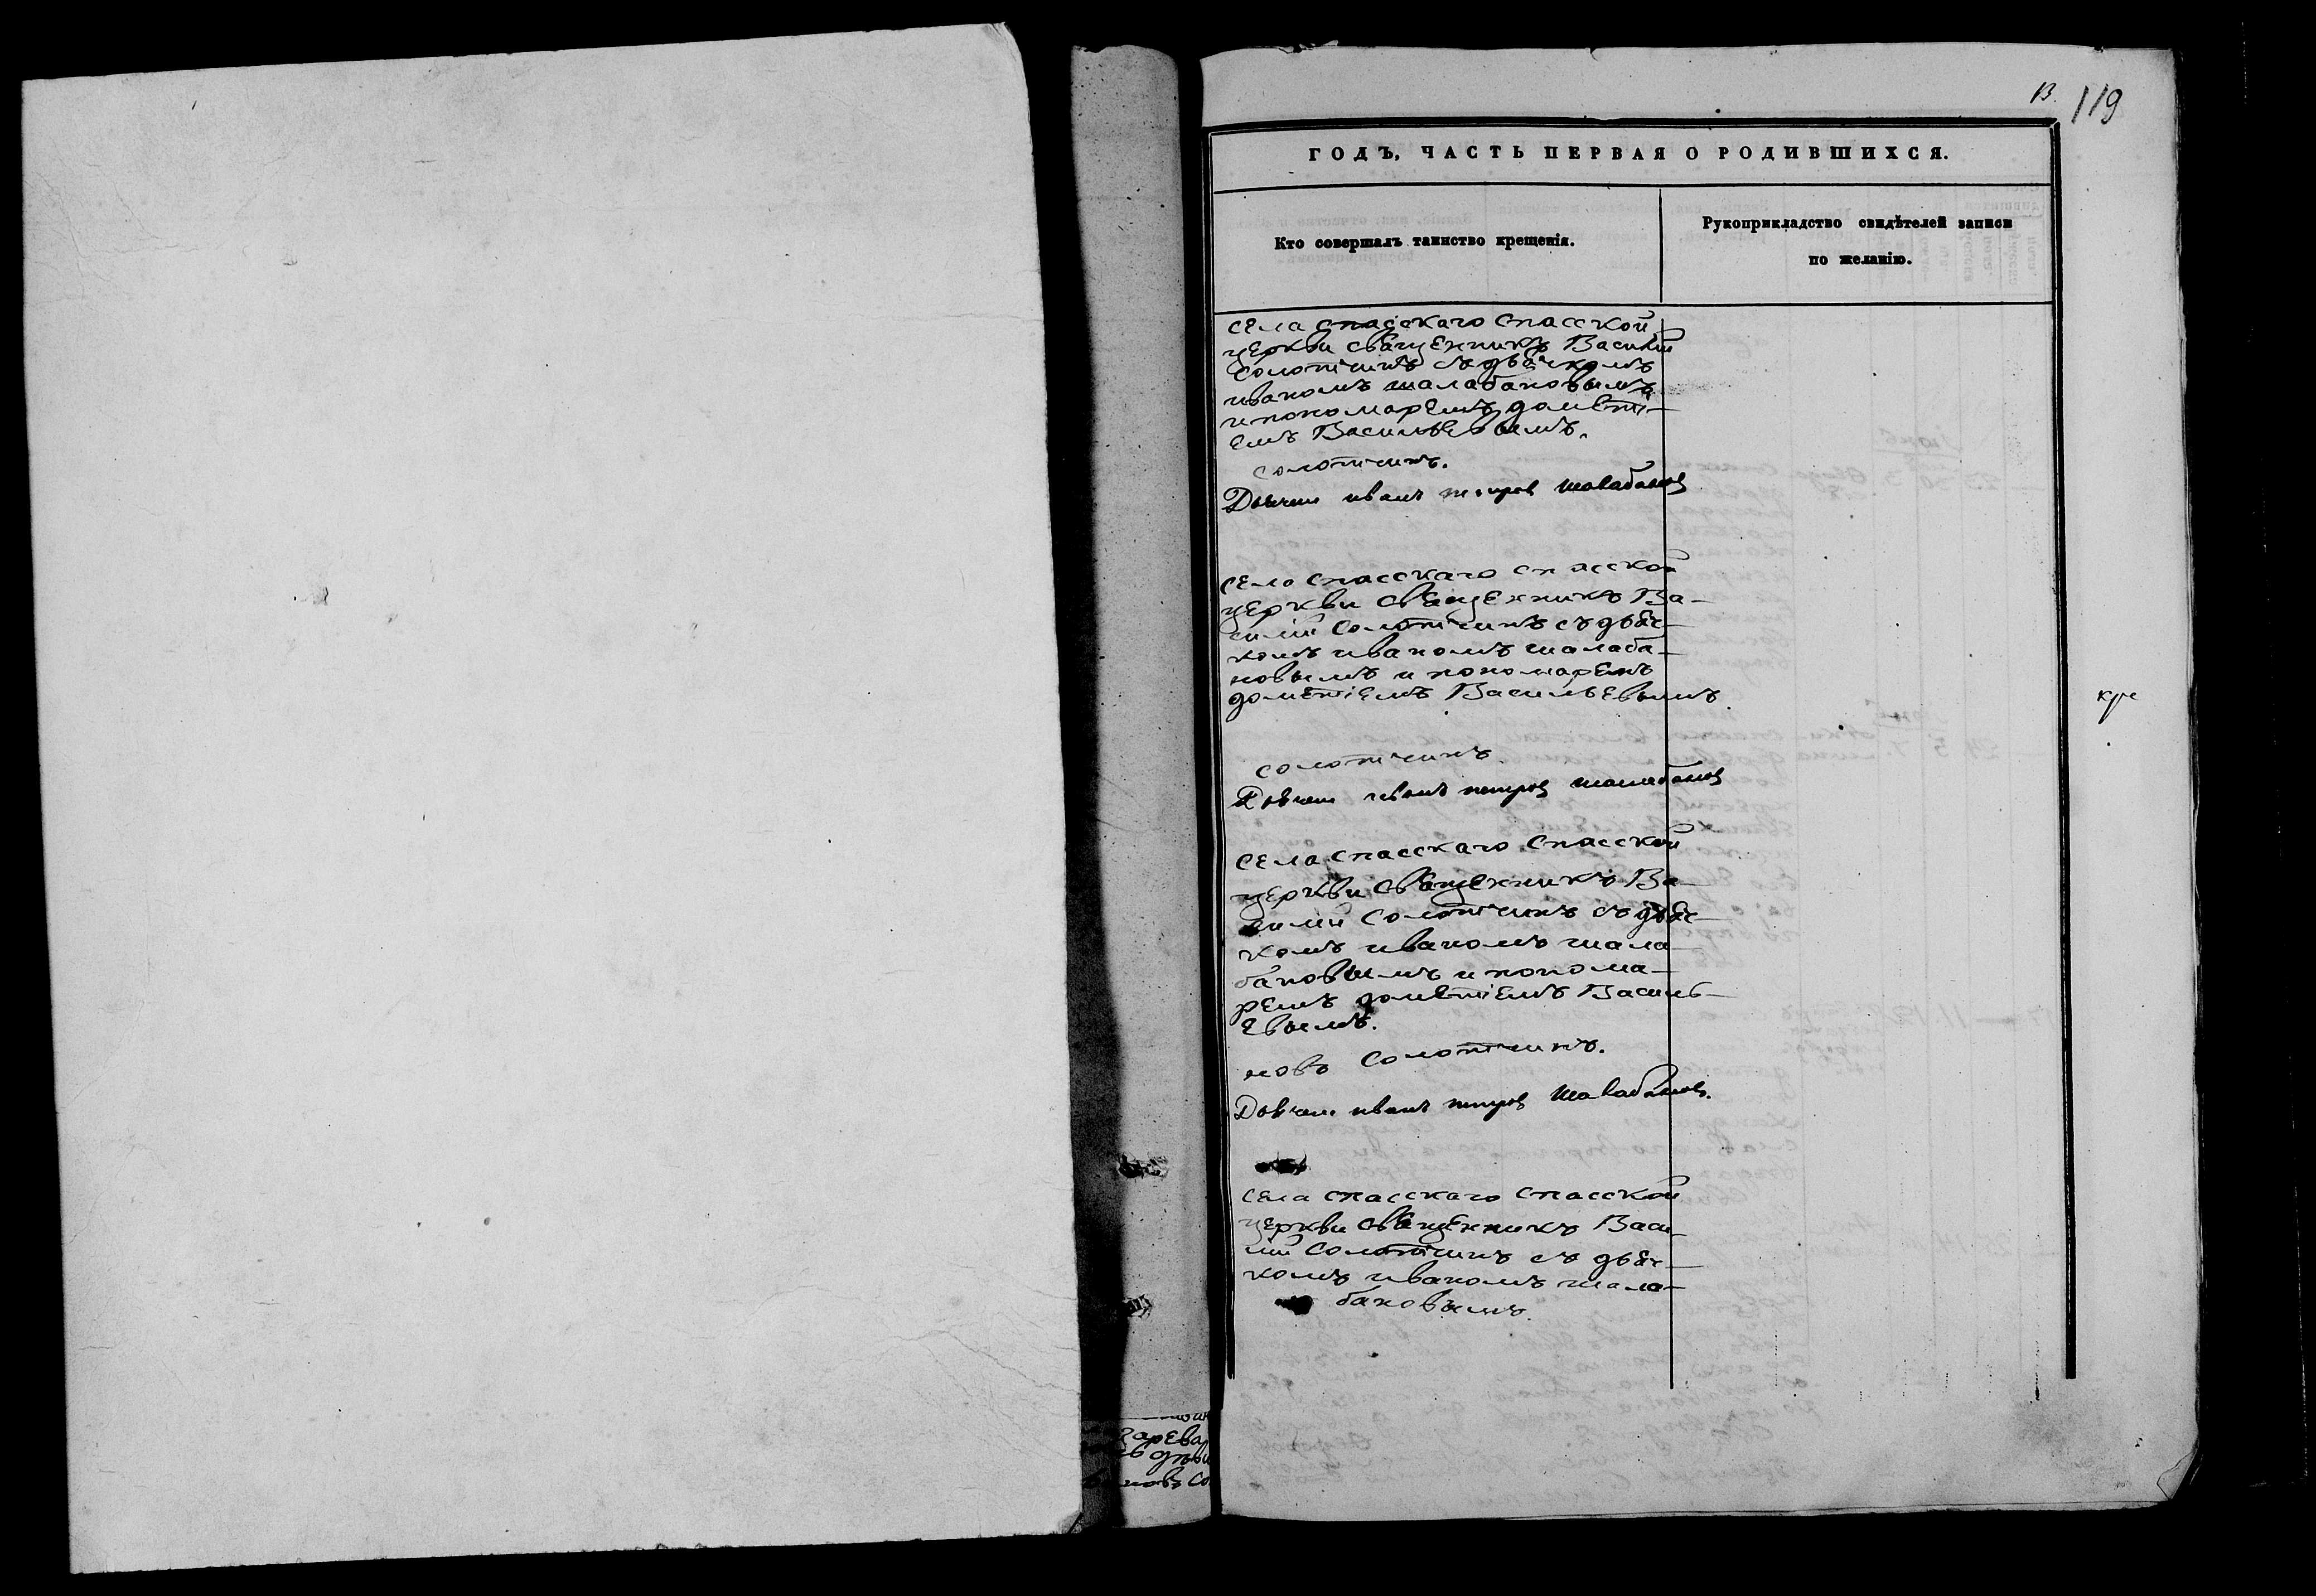 13. 119
ГОДЪ, ЧАСТЬ ПЕРВАЯ О РОДИВШИХСЯ.
Кто совершалъ таинство крещенія.
Рукоприкладство свидѣтелей записи
по желанію.
села спасскаго спасской
церкви священникъ Василій
солотчинъ съ дьячкомъ
иваномъ шалабановымъ
и пономаремъ дометі-
емъ Васильевымъ.
солотчинъ.
Дьячек иванъ петров шалабанов
села спасскаго спасской
церкви священникъ Ва-
силій солотчинъ съ дьяч-
комъ иваномъ шалаба-
новымъ и пономаремъ
дометіемъ Васильевымъ.
солотчинъ
Дьячек иванъ петров шалабанов
села спасскаго спасской
церкви священникъ Ва-
силій солотчинъ съ дьяч-
комъ иваномъ шала-
бановымъ и понома-
ремъ дометіемъ Василь-
евымъ.
солотчинъ.
Дьячек иванъ петров шалабанов.
села спасскаго спасской
церкви священникъ Васи-
лій солотчинъ съ дьяч-
комъ иваномъ шала-
бановымъ.